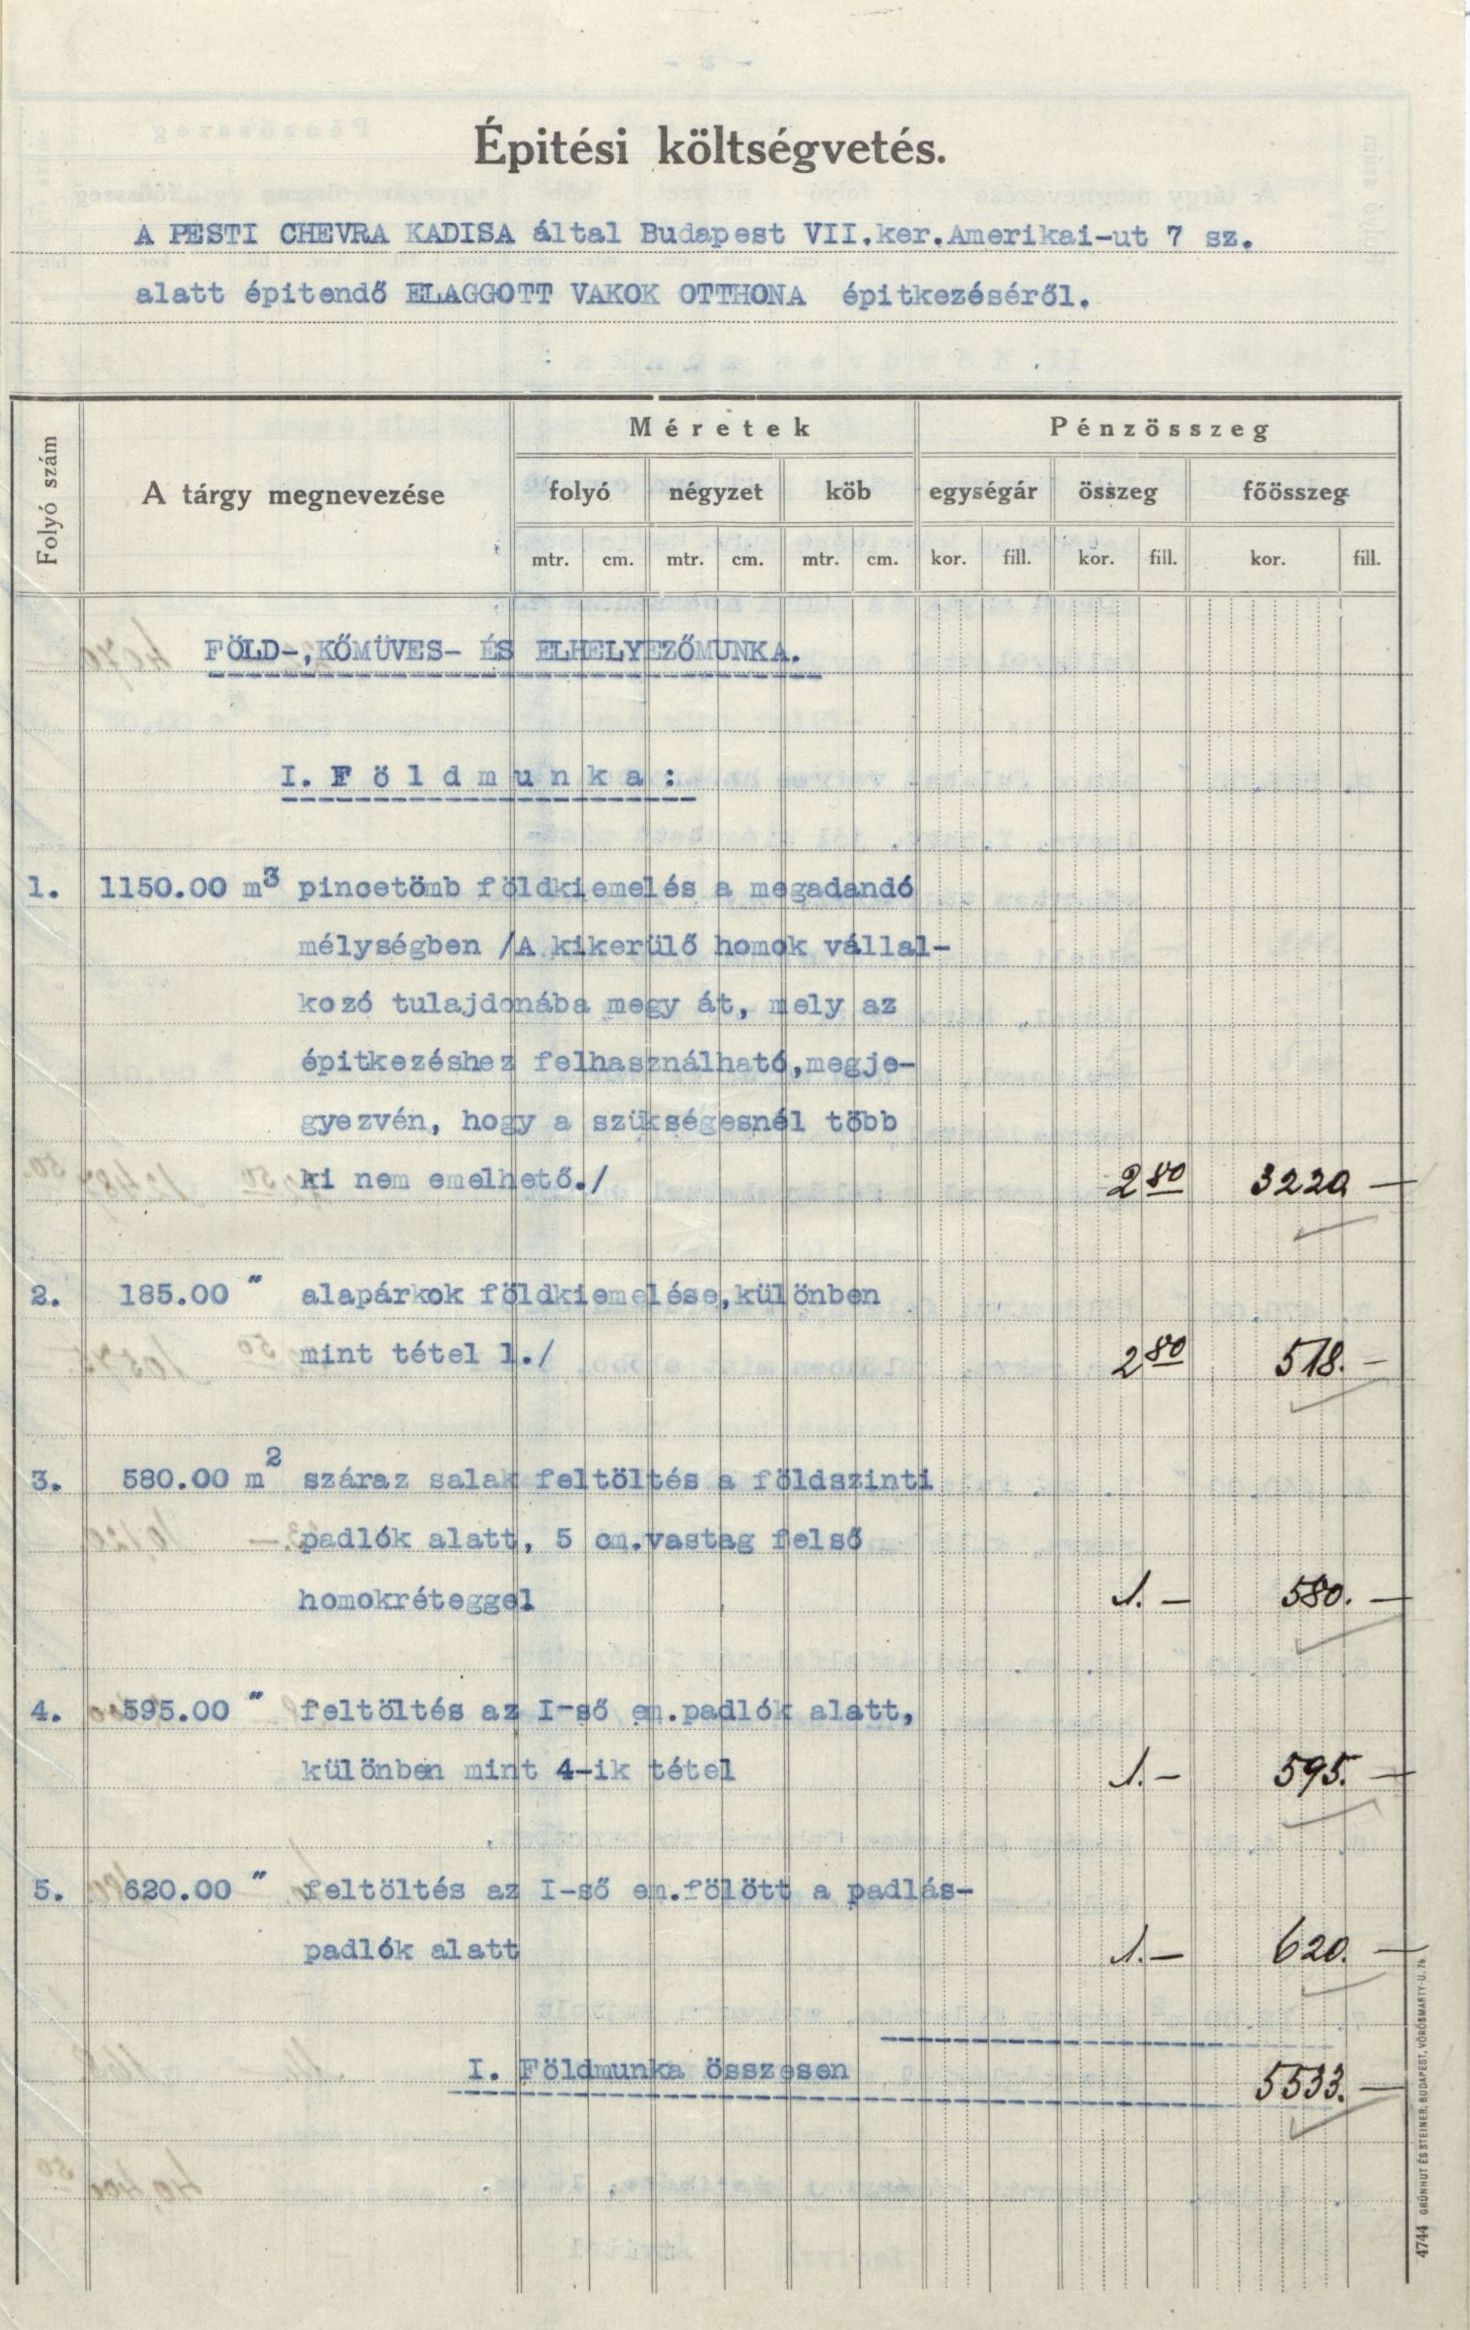 Épitési költségvetés.
A PESTI CHEVRA KADISA által Budapest VII.ker.Amerikai-ut 7 sz.
alatt épitendő ELAGGOTT VAKOK OTTHONA épitkezéséről.
Folyó szám
A tárgy megnevezése
Méretek
Pénzösszeg
folyó négyzet köb egységár összeg főösszeg
mtr. cm. mtr. cm. mtr. cm. kor. fill. kor. fill. kor. fill.
FÖLD-,KŐMÜVES- ÉS ELHELYEZŐMUNKA.
I. Földmunka:
1. 1150.00 m3 pincetömb földkiemelés a megadandó
mélységben /A kikerülő homok vállal-
kozó tulajdonába megy át, mely az
épitkezéshez felhasználható,megje-
gyezvén, hogy a szükségesnél több
ki nem emelhető./ 2 80 3220 —
2. 185.00 " alapárkok földkiemelése,különben
mint tétel 1./ 2 80 518. —
3. 580.00 m2 száraz salak feltöltés a földszinti
padlók alatt, 5 cm.vastag felső
homokréteggel 1. — 580. —
4. 595.00 " feltöltés az I-ső em.padlók alatt,
különben mint 4-ik tétel 1. — 595. —
5. 620.00 " feltöltés az I-ső em.fölött a padlás-
padlók alatt 1. — 620. —
I. Földmunka összesen 5533. —
4744 GRÜNHUT ÉS STEINER, BUDAPEST, VÖRÖSMARTY-U. 76.